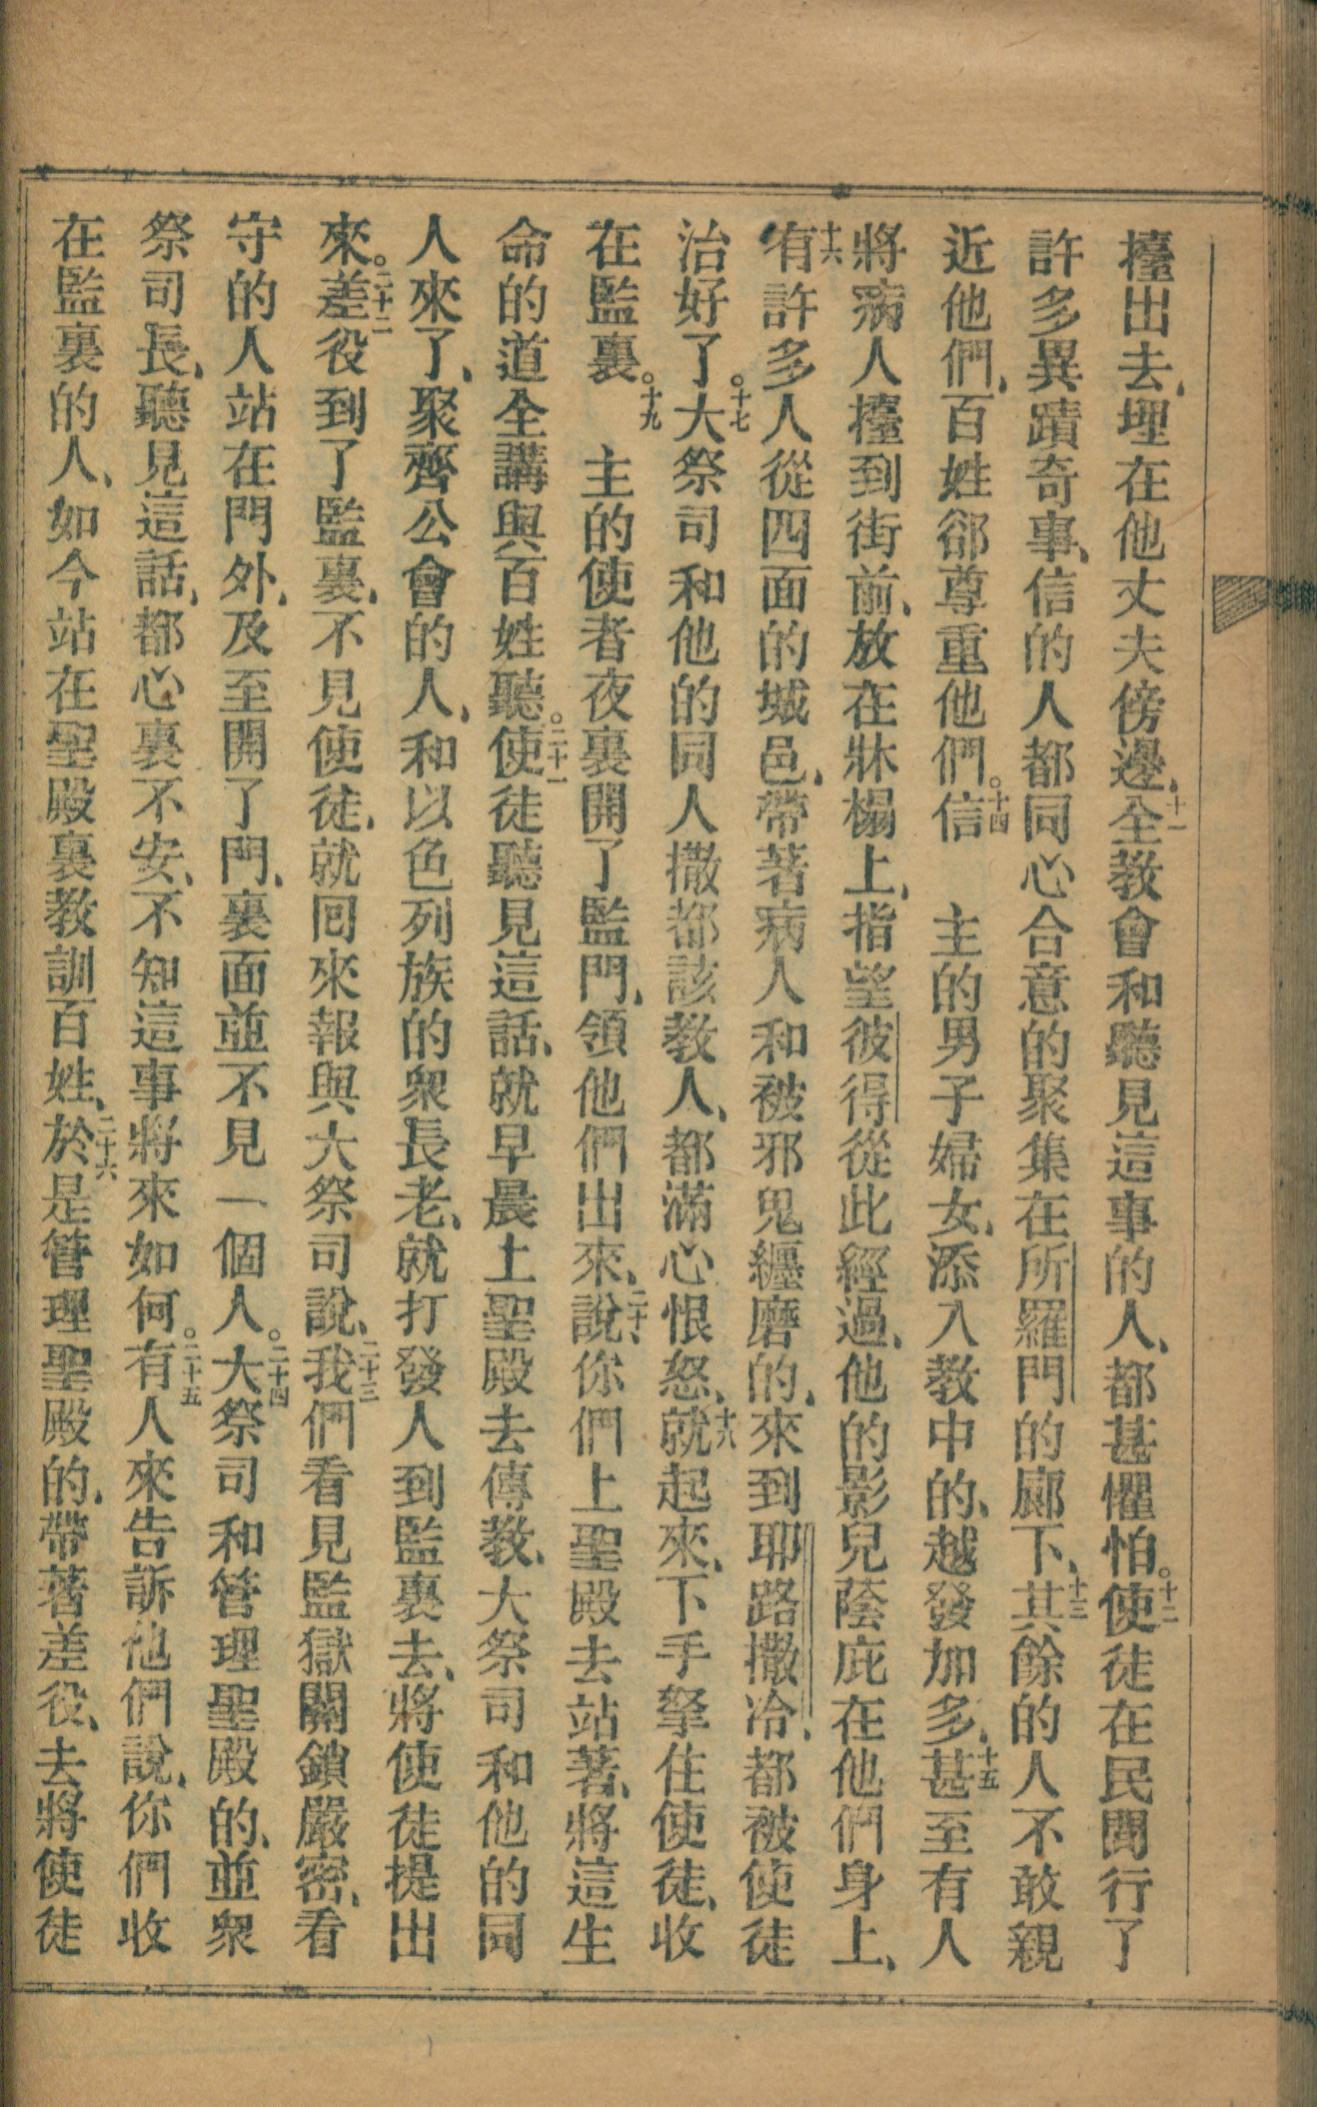 擡出去、埋在他丈夫傍邊、十一全教會和聽見這事的人、都甚懼怕。十二使徒在民間行了
許多異蹟奇事、信的人都同心合意的聚集在所羅門的廊下、十三其餘的人不敢親
近他們、百姓郤尊重他們。十四信　主的男子婦女、添入教中的、越發加多、十五甚至有人
將病人擡到街前、放在牀榻上、指望彼得從此經過、他的影兒蔭庇在他們身上、
十六有許多人從四面的城邑、帶著病人和被邪鬼纏磨的、來到耶路撒冷、都被使徒
治好了。十七大祭司和他的同人撒都該教人、都滿心恨怒、十八就起來、下手拏住使徒、收
在監裏。十九　主的使者夜裏開了監門、領他們出來、二十說、你們上聖殿去站著、將這生
命的道全講與百姓聽。二十一使徒聽見這話、就早晨上聖殿去傳教、大祭司和他的同
人來了、聚齊公會的人、和以色列族的衆長老、就打發人到監裏去、將使徒提出
來。二十二差役到了監裏、不見使徒、就回來報與大祭司說、二十三我們看見監獄關鎖嚴密、看
守的人站在門外、及至開了門、裏面並不見一個人。二十四大祭司和管理聖殿的、並衆
祭司長、聽見這話、都心裏不安、不知這事將來如何。二十五有人來告訴他們說、你們收
在監裏的人、如今站在聖殿裏教訓百姓、二十六於是管理聖殿的、帶著差役、去將使徒